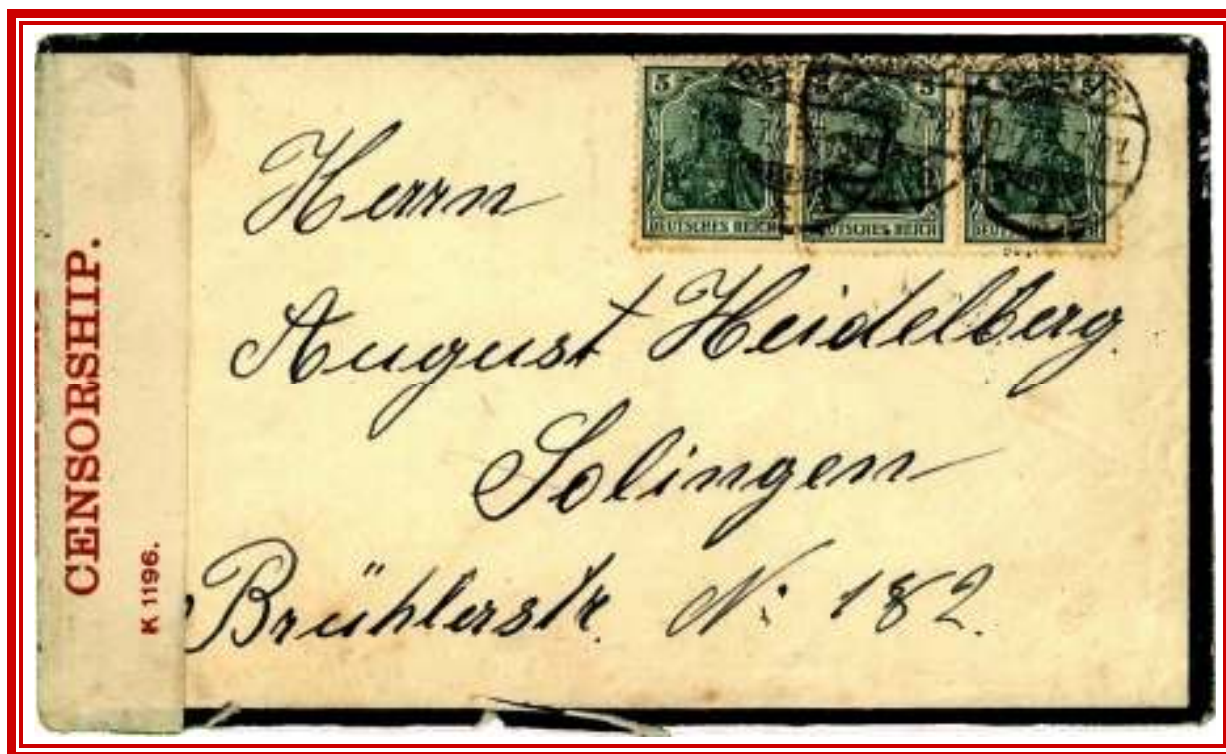 CENSORSHIP.
K 1196.
5 5 5
DEUTSCHES REICH DEUTSCHES REICH DEUTSCHES REICH
Herrn
August Heidelberg.
Solingen
Brühlerstr. N: 182.